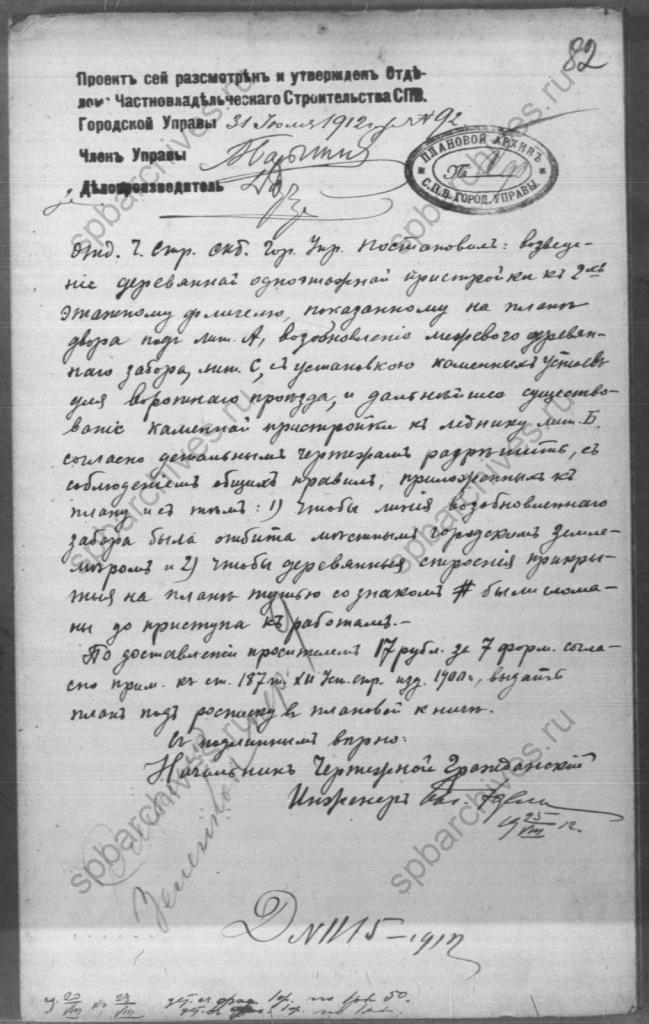 82
Проектъ сей разсмотрѣнъ и утвержденъ Отдѣ-
ломъ Частновладѣльческаго Строительства СПБ.
Городской Управы 31 Июля 1912 г. за № 92
Членъ Управы
Дѣлопроизводитель
ПЛАНОВОЙ АРХИВЪ
С.П.Б. ГОРОД. УПРАВЫ
Отд. Ч. Стр. Спб. Гор. Упр. Постановилъ: возведе-
ніе деревянной одноэтажной пристройки къ 2мъ
этажному флигелю, показанному на планѣ
двора подъ лит. А, возобновленіе межевого деревян-
наго забора, лит. С, съ установкою каменныхъ устоевъ
для воротнаго проѣзда, и дальнѣйшее существо-
ваніе каменной пристройки къ леднику лит. Б.
согласно детальнымъ чертежамъ разрѣшить, съ
соблюденіемъ общихъ правилъ, приложенныхъ къ
плану и съ тѣмъ: 1) чтобы линія возобновленнаго
забора была отбита мѣстнымъ городскимъ земле-
мѣромъ и 2) чтобы деревянныя строенія прикры-
тыя на планѣ тушью со знакомъ # были слома-
ны до приступа къ работамъ.-
По доставленіи просителемъ 17 рубл. за 7 форм. согла-
сно прим. къ ст. 187 т. XII Уст. стр. изд. 1900 г., выдать
планъ подъ росписку въ плановой книгѣ.
Съ подлиннымъ вѣрно:
Начальникъ Чертежной Гражданскій
Инженеръ
25/VIII 12.
Д № 1115-1912
spbarchives.ru
spbarchives.ru
spbarchives.ru
spbarchives.ru
spbarchives.ru
spbarchives.ru
spbarchives.ru
spbarchives.ru